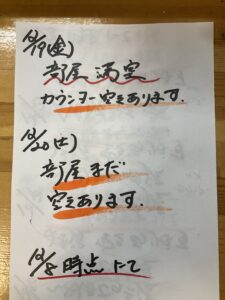 12/19(金)
部屋 満室
カウンター空きあります.
12/20(土)
部屋 まだ
空きあります.
12/8 時点 にて